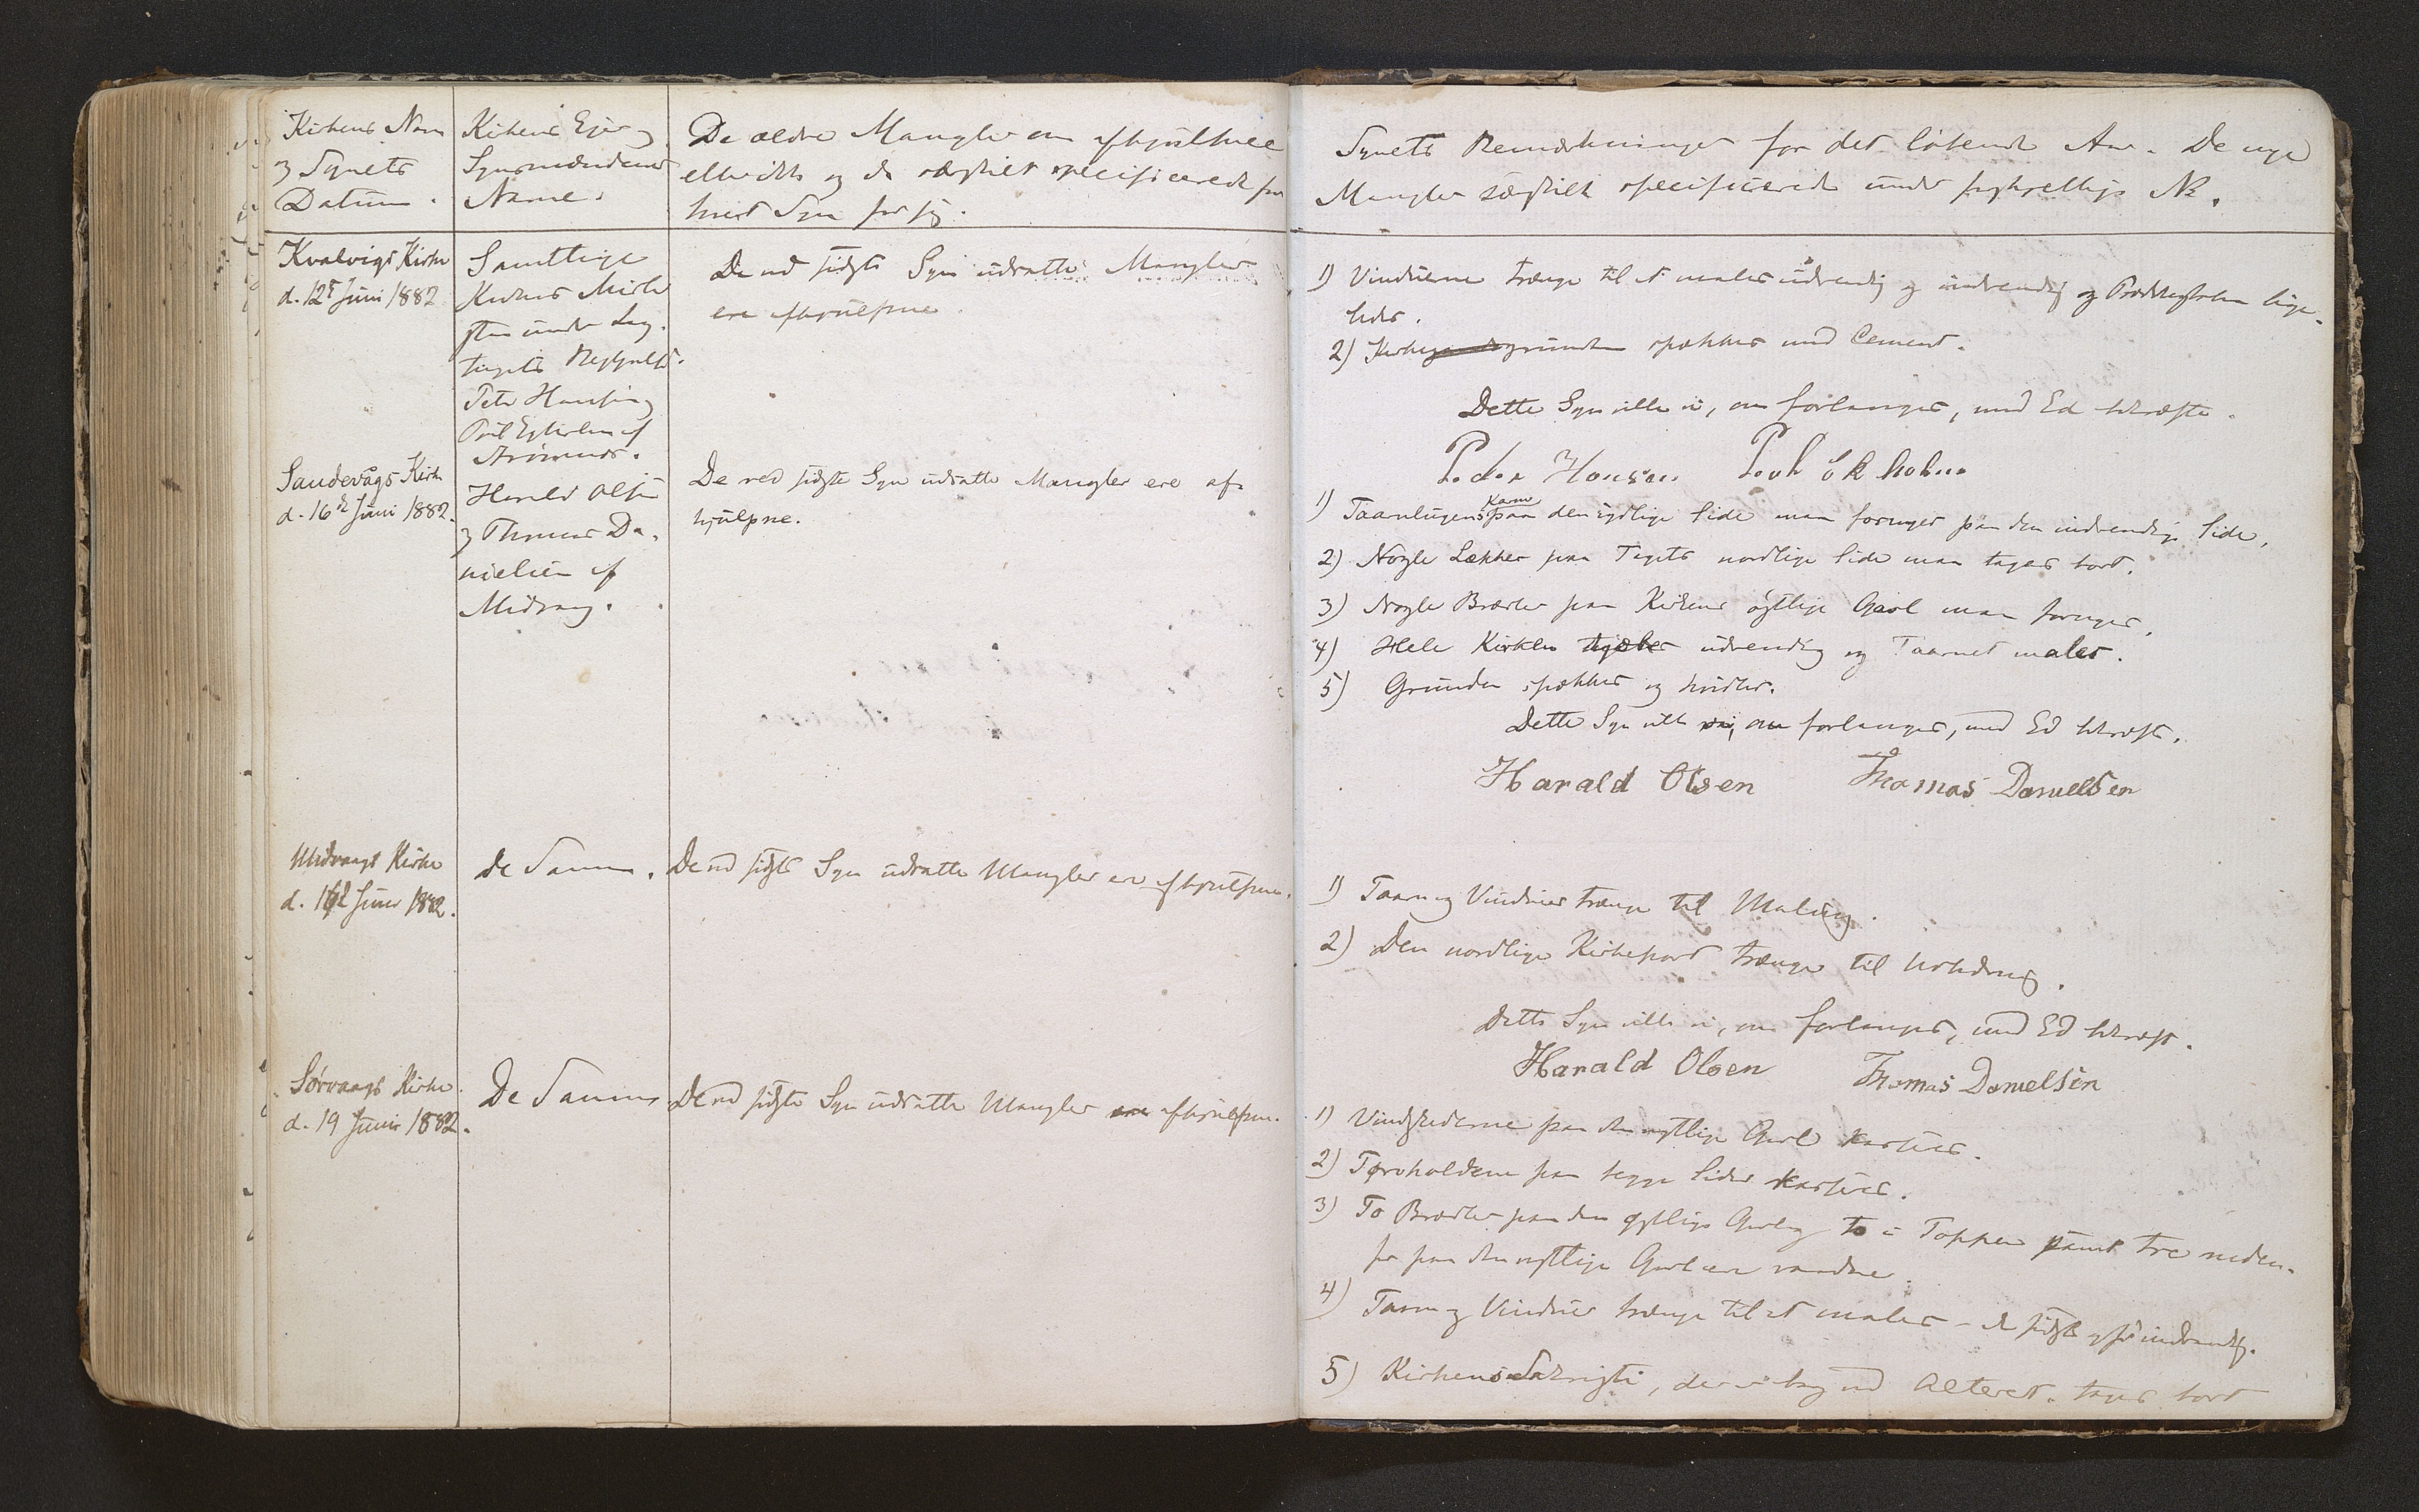 Kirkens Navn
og Synets
Datum.
Kirkens Ejer og
Synsmændenes
Navne.
De ældre Mangler om afhjulpne
eller ikke og da særskilt specificerede for
hvert Syn for sig.
Synets Bemærkninger for det löbende Aar. De nye
Mangler særskilt specificerede under forskjellige No.
Kvalvigs Kirke
d. 12t Juni 1882
Samtlige
Kirker
under Lag-
tingets
Peter Hansen og
af
De ved sidste Syn udsatte Mangler
ere afhjulpne.
1) Vinduerne trænge til at males udvendig og indvendig og lige-
ledes.
2) Kirkegrunden spækkes med Cement.
Dette Syn ville vi, om forlanges, med Ed bekræfte.
Peder Hansen
Sandevågs Kirke
d. 16de Juni 1882.
Harald Olsen
og Thomas Da-
nielsen af
Midvaag.
De ved sidste Syn udsatte Mangler ere af-
hjulpne.
1) Taarnlugens Karm paa den sydlige Side maa fornyes paa den indvendige Side.
2) Nogle Lækker paa Tagets nordlige Side maa tages bort.
3) Nogle Brædder paa Kirkens østlige Gavl maa fornyes.
4) Hele Kirken tjæres udvendig og Taarnet males.
5) Grunden spækkes og hvidtes.
Dette Syn ville vi, om forlanges, med Ed bekræfte.
Harald Olsen Thomas Danielsen
Midvaags Kirke
d. 16de Juni 1882.
de Samme.
De ved sidste Syn udsatte Mangler ere afhjulpne.
1) Taarn og Vinduer trænge til Maling.
2) Den nordlige Kirkeport trænger til
Dette Syn ville vi, om forlanges, med Ed bekræfte.
Harald Olsen Thomas Danielsen
Sörvaags Kirke
d. 19 Juni 1882.
De Samme
De ved sidste Syn udsatte Mangler ere afhjulpne.
1) Vindskederne paa den Gavl kasseres.
2) Tørvholdene paa begge Sider kasseres.
3) To Brædder paa den østlige Gavl og to i Toppen samt tre neden-
for paa den Gavl ere raadne.
4) Taarn og Vinduer trænge til at males - de sidste også indvendig.
5) Kirkens Sakristi, der er bag ved Alteret, tages bort